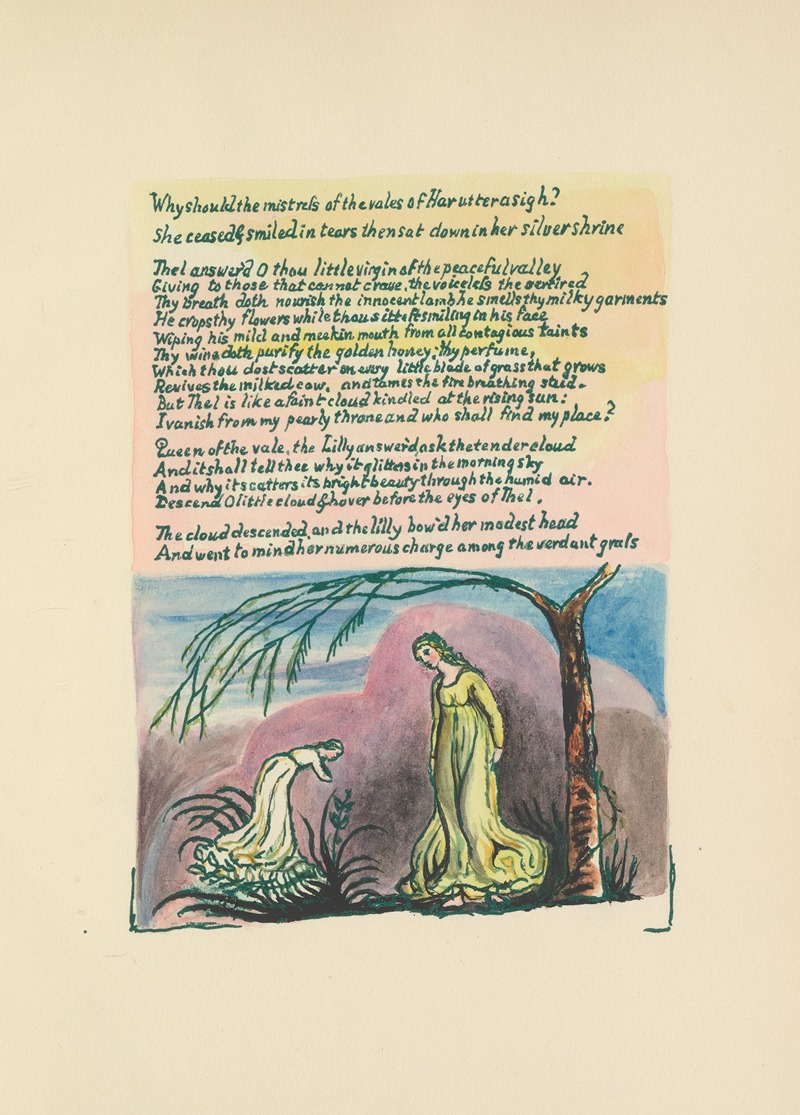 Why should the mistress of the vales of Har utter a sigh?
She ceasd & smiled in tears then sat down in her silver shrine
Thel answerd O thou little virgin of the peaceful valley
Giving to those that cannot crave, the voiceless the oertired
Thy breath doth nourish the innocent lamb he smells thy milky garments
He crops thy flowers while thou sittest smiling in his face
Wiping his mild and meekin mouth from all contagious taints
Thy wine doth purify the golden honey; thy perfume,
Which thou dost scatter on every little blade of grass that grows
Revives the milked cow, and tames the fire breathing steed.
But Thel is like a faint cloud kindled at the rising sun:
I vanish from my pearly throne and who shall find my place?
Queen of the vale, the Lilly answerd, ask the tender cloud
And it shall tell thee why it glitters in the morning sky
And why it scatters its bright beauty through the humid air.
Descend O little cloud & hover before the eyes of Thel.
The cloud descended, and the lilly bow'd her modest head
And went to mind her numerous charge among the verdant grass